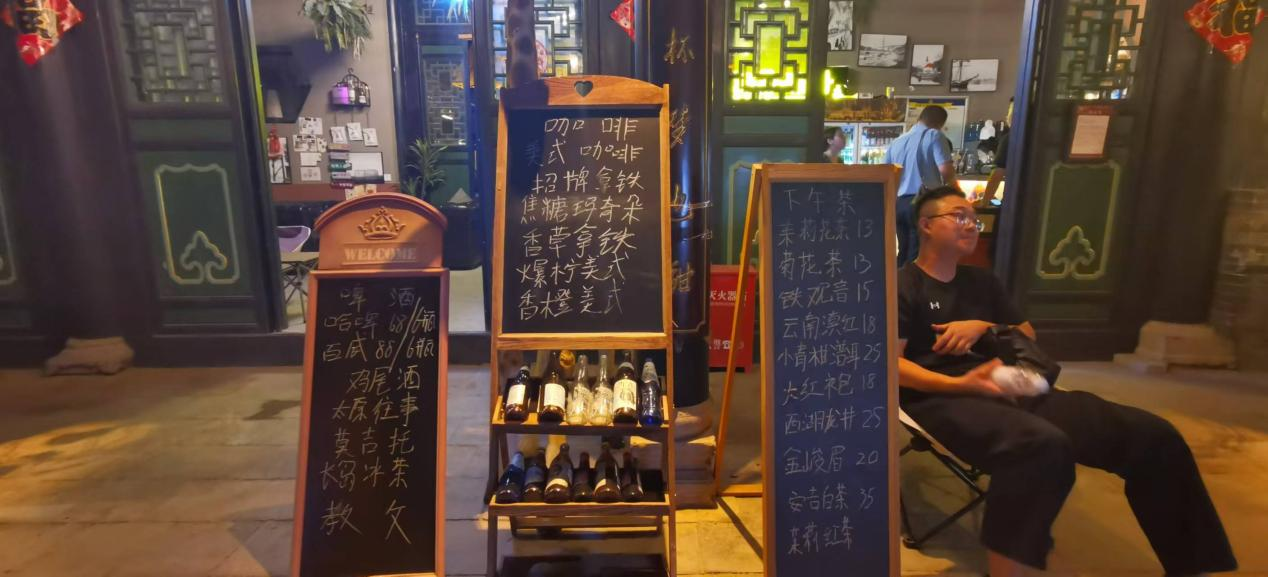 WELCOME
啤 酒
哈啤 68/6瓶
百威 88/6瓶
鸡尾酒
太原往事
莫吉托
长岛冰茶
教父
咖 啡
美式 咖啡
招牌拿铁
焦糖玛奇朵
香草拿铁
爆柠美式
香橙美式
下午茶
茉莉花茶 13
菊花茶 13
铁观音 15
云南滇红 18
小青柑普洱 25
大红袍 18
西湖龙井 25
金骏眉 20
安吉白茶 35
茉莉红茶
灭火器
福